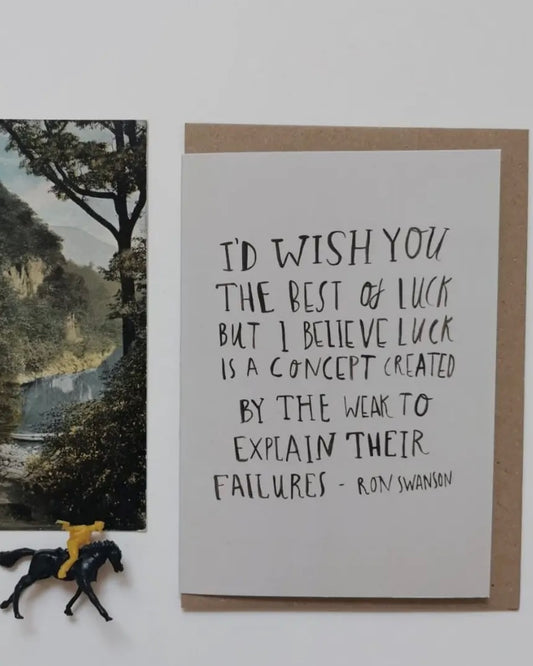 I'D WISH YOU
THE BEST of LUCK
BUT I BELIEVE LUCK
IS A CONCEPT CREATED
BY THE WEAK TO
EXPLAIN THEIR
FAILURES - RON SWANSON